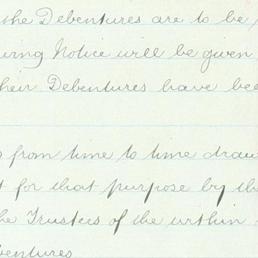 the Debentures are to be
wing Notice will be given
heir Debentures have bee
from time to time draw
t for that purpose by the
he Trustees of the within
bentures